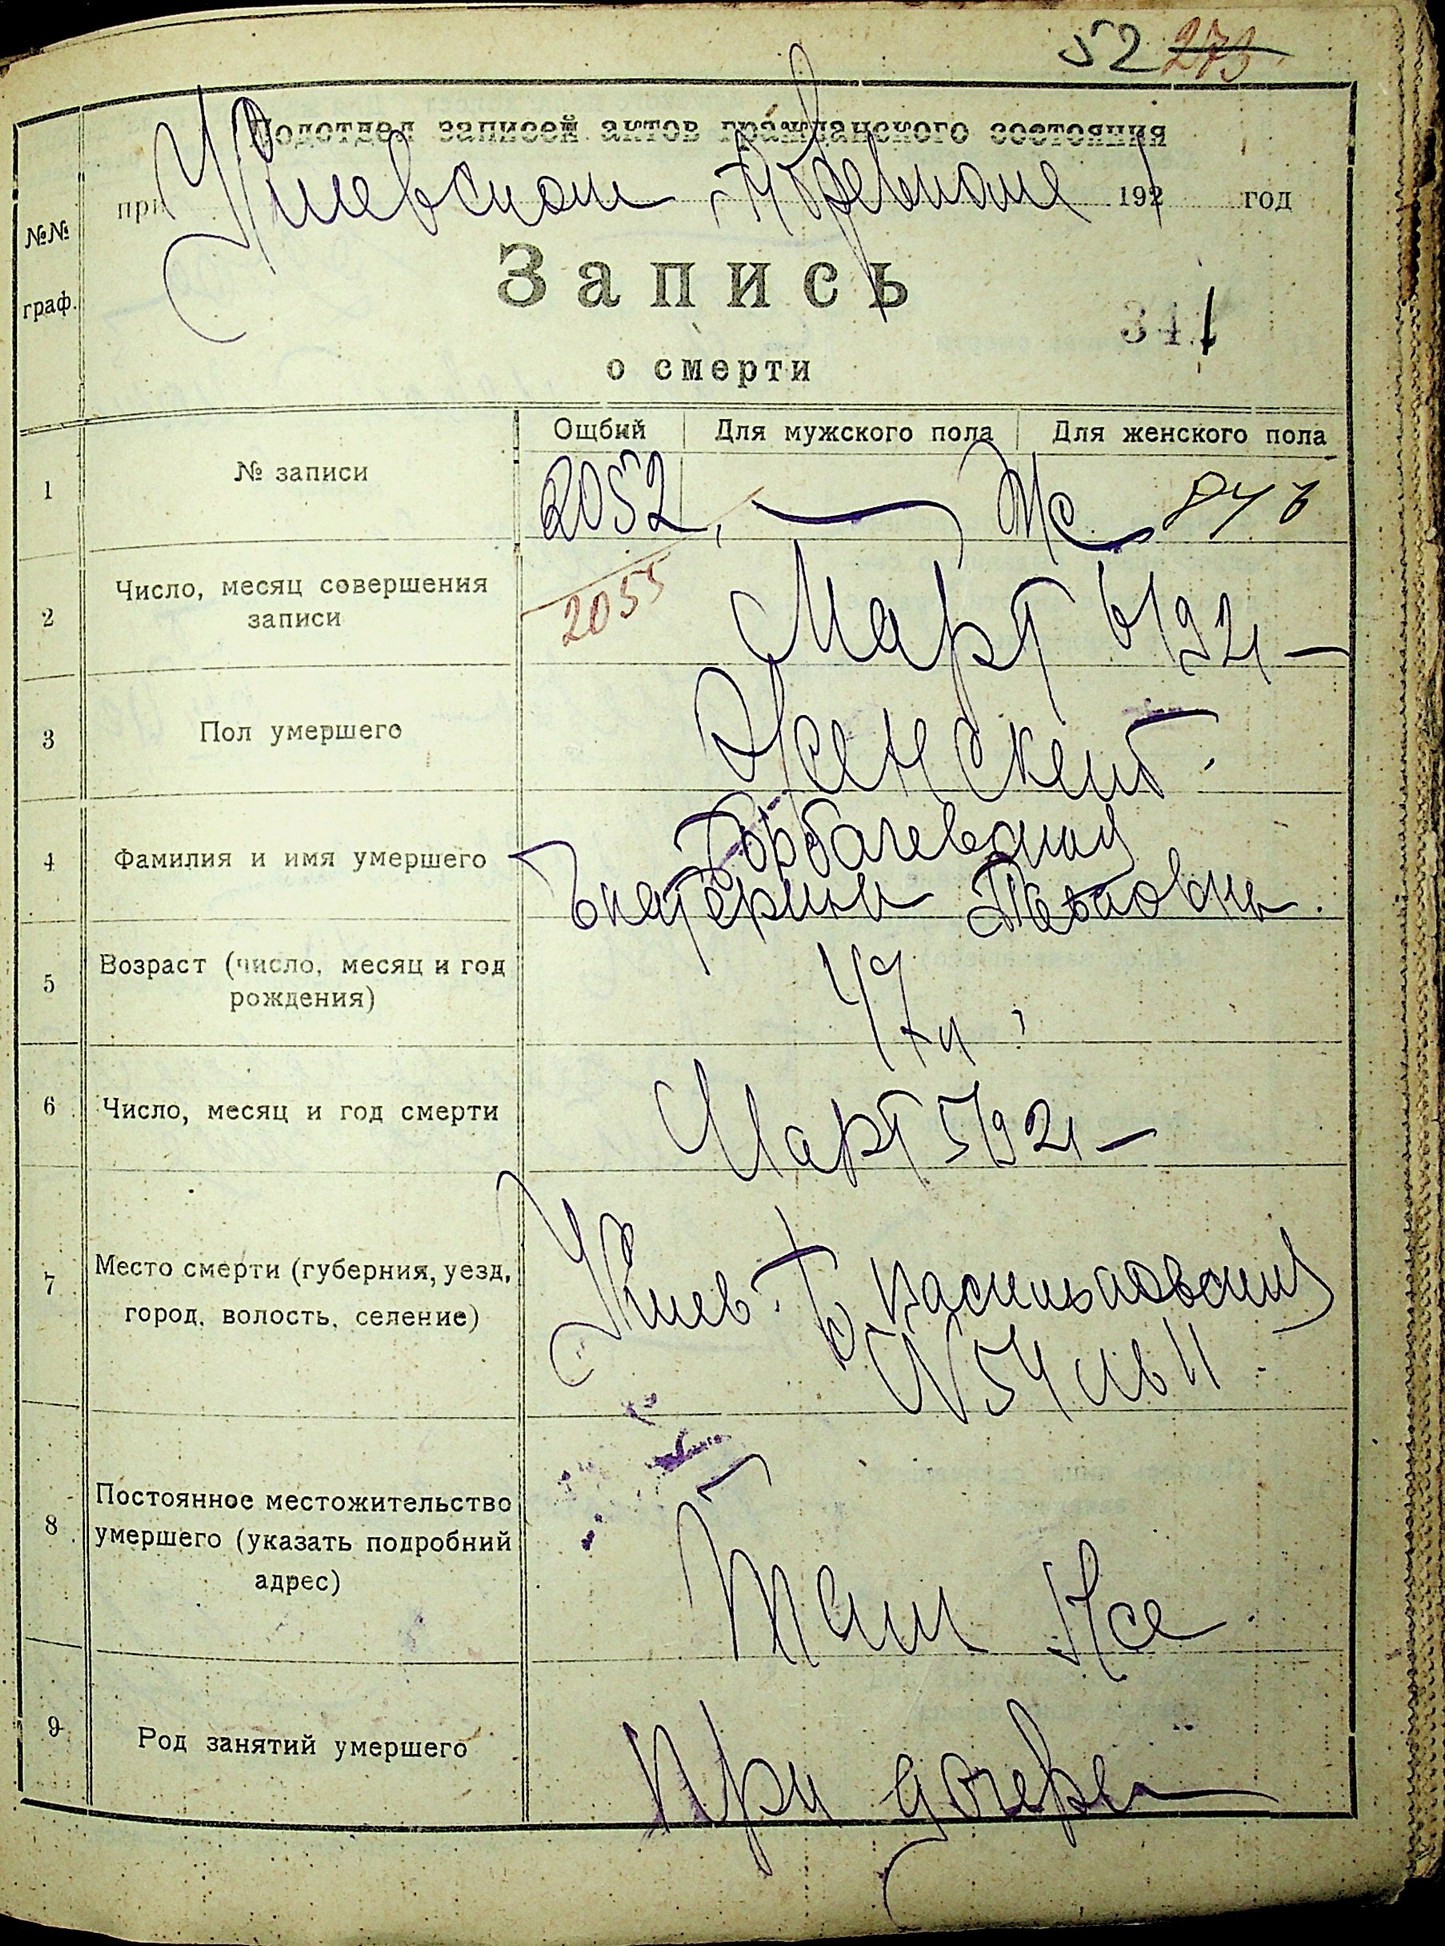 52 273
Подотдел записей актов гражданского состояния
при Киевском 1921 год
№№ граф.
Запись
341
о смерти
Ощбий Для мужского пола Для женского пола
1 № записи 2052, — Ж 846
2055
2 Число, месяц совершения
записи
Март 6/921 —
3 Пол умершего Женский.
4 Фамилия и имя умершего
Горбачевская
Екатерина
5 Возраст (число, месяц и год
рождения)
47 л
6 Число, месяц и год смерти Март 5/921 —
7 Место смерти (губерния, уезд,
город, волость, селение)
Киев. Б Васильковский
№ 54 кв 11
8 Постоянное местожительство
умершего (указать подробний
адрес)
Там же.
9 Род занятий умершего При дочери